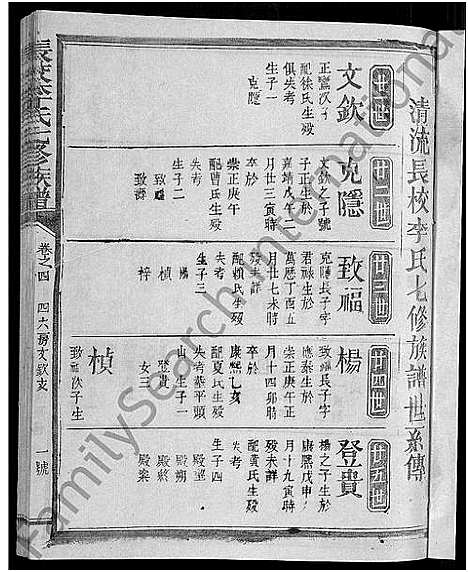 清流長校李氏七修族譜世系傳
廿一世
文欽
正鸞次子
配徐氏生歿
俱失考
生子一
克隱
廿二世
克隱
文欽之子號
子正生於
嘉靖戊午二
月廿三寅時
卒於
崇正庚午
配曹氏生歿
失考
生子二
致福
致壽
廿三世
致福
克隱長子字
君禄生於
萬歷丁酉五
月廿七未時
歿未詳
配賴氏生歿
失考
生子三
楊
楨
梓
廿四世
楊
致福長子字
應泰生於
崇正庚午正
月十四卯時
卒於
康熙乙亥
配夏氏生歿
失考葬平頭
山生子一
登貴
女三
楨
致福次子生
廿五世
登貴
楊之子生於
康熙戊申
月十九寅時
歿未詳
配黃氏生歿
失考
生子四
殿聖
殿朔
殿將
殿棻
長校李氏七修族譜
卷之四
四六房文欽支
一號
FamilySearch International